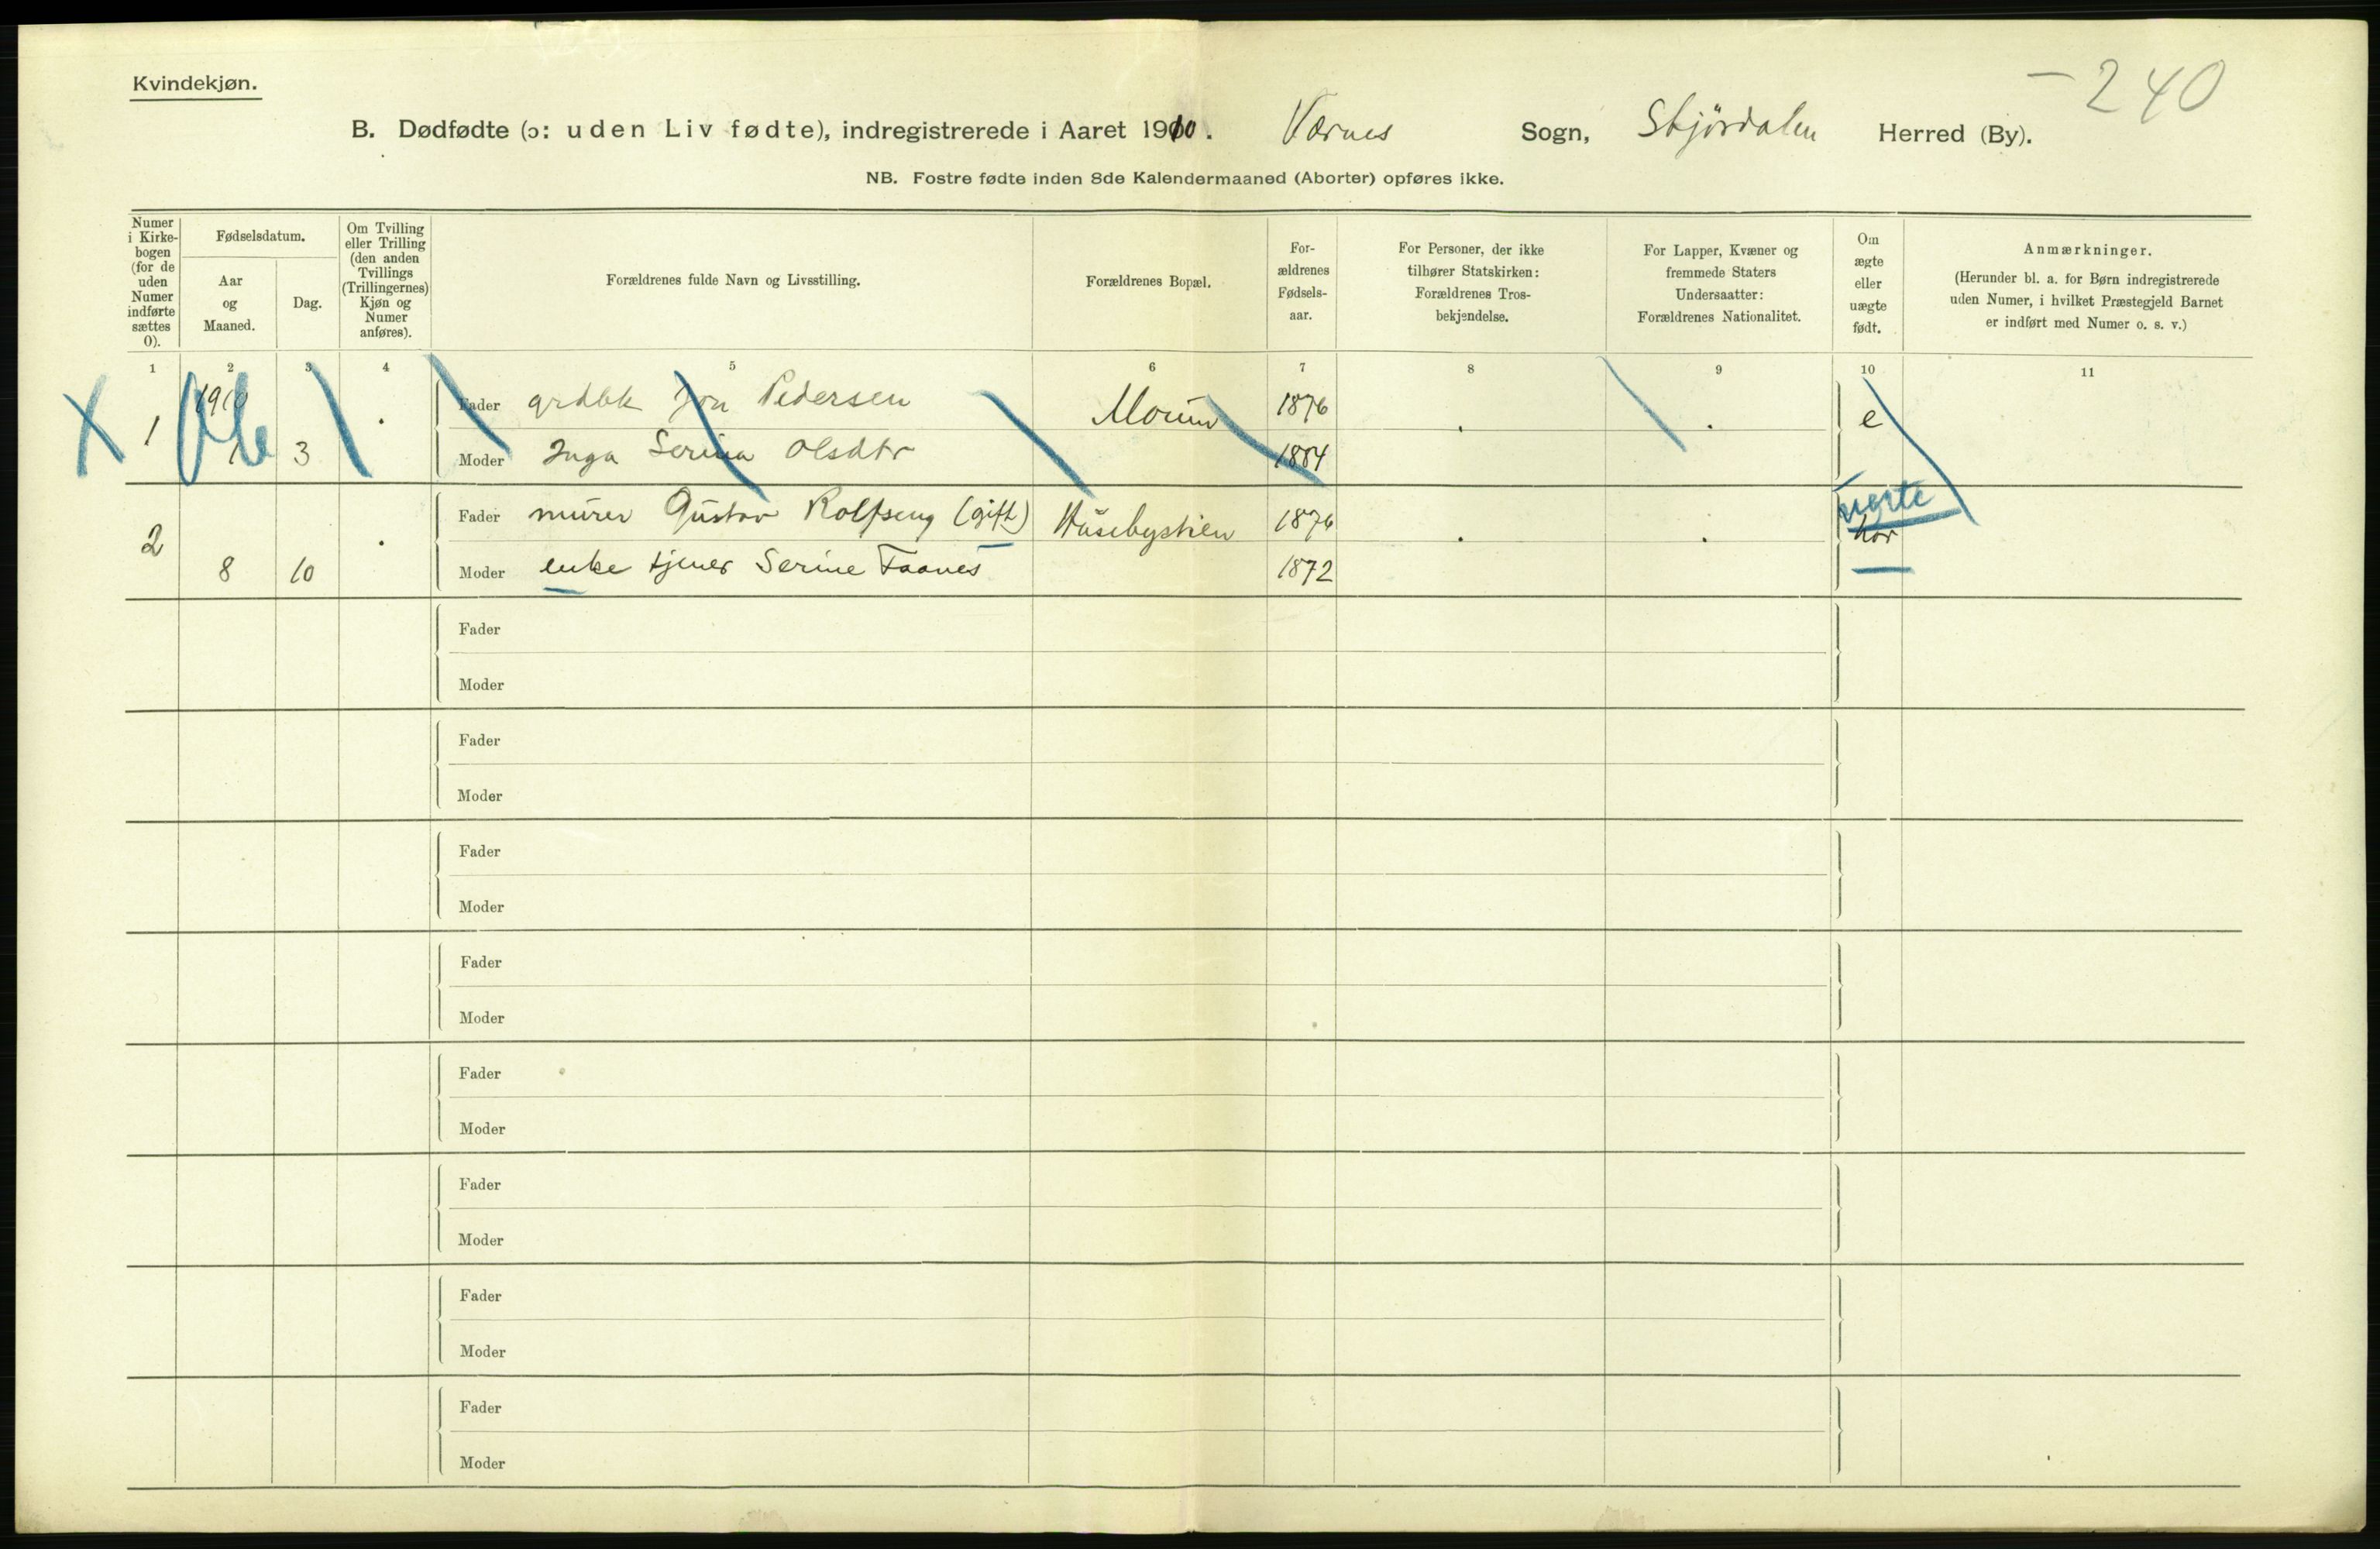 Kvindekjøn.
- 240
B. Dødfødte (ɔ: uden Liv fødte), indregistrerede i Aaret 1910. Værnes Sogn, Stjørdalen Herred (By).
NB. Fostre fødte inden 8de Kalendermaaned (Aborter) opføres ikke.
Numer i Kirke-bogen (for de uden Numer indførte sættes 0).
Fødselsdatum.
Aar og Maaned.
Dag.
Om Tvilling eller Trilling (den anden Tvillings (Trillingernes) Kjøn og Numer anføres).
Forældrenes fulde Navn og Livsstilling.
Forældrenes Bopæl.
For-ældrenes Fødsels-aar.
For Personer, der ikke tilhører Statskirken: Forældrenes Tros-bekjendelse.
For Lapper, Kvæner og fremmede Staters Undersaatter: Forældrenes Nationalitet.
Om ægte eller uægte født.
Anmærkninger.
(Herunder bl. a. for Børn indregistrerede uden Numer, i hvilket Præstegjeld Barnet er indført med Numer o. s. v.)
1 2 3 4 5 6 7 8 9 10 11
X 1 1910 3 . Fader grdbk Jon Pedersen 1876 . . e
Moder Inga Serina Olsdtr 1884
2 8 10 . Fader murer Gustav Rolfseng (gift) Husebystien 1876 . . uegte hor
Moder enke tjener Serine Faanes 1872
Fader
Moder
Fader
Moder
Fader
Moder
Fader
Moder
Fader
Moder
Fader
Moder
Fader
Moder
Fader
Moder